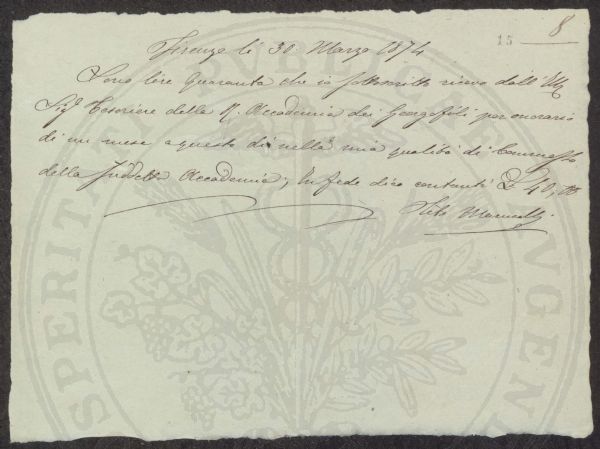 15 8
Firenze lì 30 Marzo 1874
Sono lire Quaranta che io sottoscritto ricevo dall'Ill
Sigr Tesoriere della R. Accademia dei Georgofili per onorario
di un mese a questo dì nella mia qualità di Commesso
della suddetta Accademia; In fede dico contanti £ 40,00
PROSPERITATI AUGENDAE